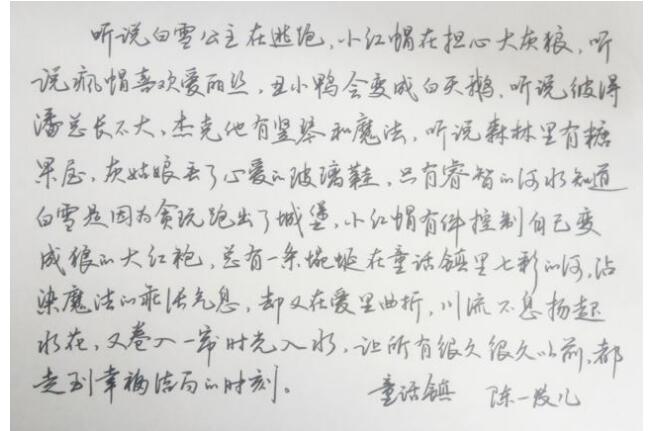 听说白雪公主在逃跑,小红帽在担心大灰狼,听
说疯帽喜欢爱丽丝,丑小鸭会变成白天鹅,听说彼得
潘总长不大,杰克他有竖琴和魔法,听说森林里有糖
果屋,灰姑娘丢了心爱的玻璃鞋,只有睿智的河水知道
白雪是因为贪玩跑出了城堡,小红帽有件控制自己变
成狼的大红袍,总有一条蜿蜒在童话镇里七彩的河,沾
染魔法的乖张气息,却又在爱里曲折,川流不息扬起
水花,又卷入一帘时光入水,让所有很久很久以前,都
走到幸福结局的时刻。
童话镇 陈一发儿